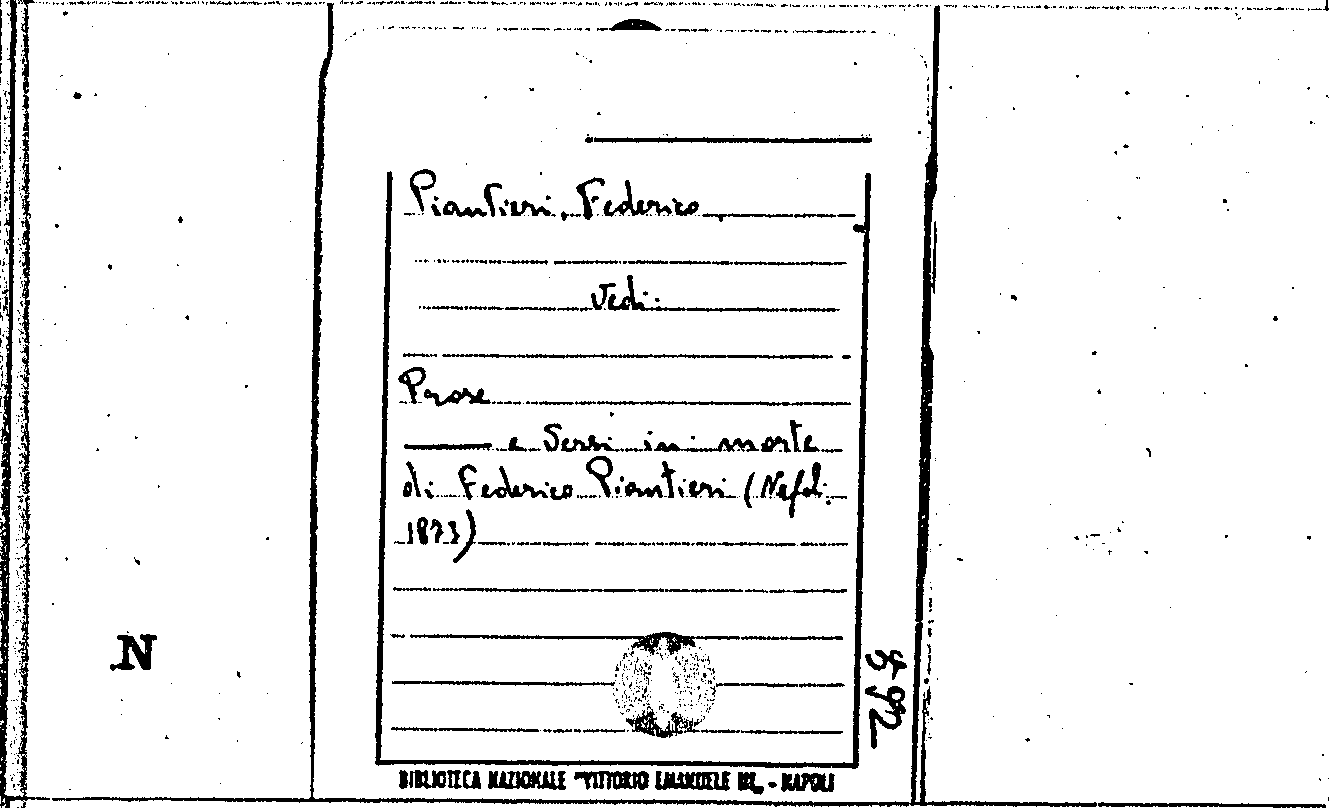 Piantieri, Federico.
Vedi:
Prose
——— e versi in morte
di Federico Piantieri (Napoli
1873)
N
BIBLIOTECA NAZIONALE "VITTORIO EMANUELE III„ - NAPOLI